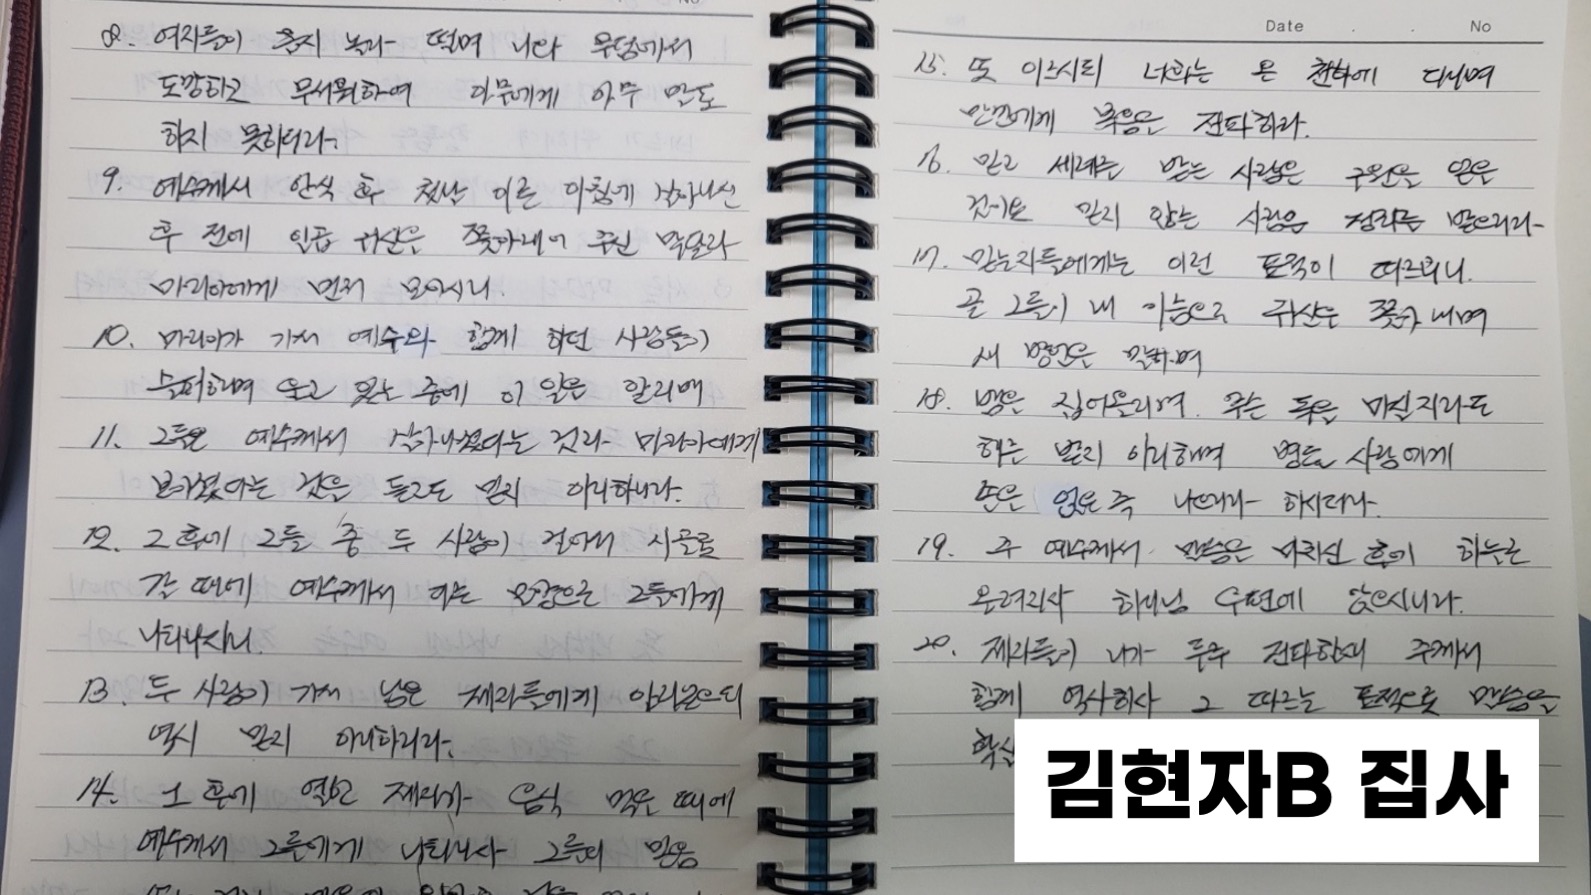 8. 여자들이 몹시 놀라 떨며 나와 무덤에서
도망하고 무서워하여 아무에게 아무 말도
하지 못하더라.
9. 예수께서 안식 후 첫날 이른 아침에 살아나신
후 전에 일곱 귀신을 쫓아내어 주신 막달라
마리아에게 먼저 보이시니.
10. 마리아가 가서 예수와 함께 하던 사람들이
슬퍼하며 울고 있는 중에 이 일을 알리매
11. 그들은 예수께서 살아나셨다는 것과 마리아에게
보이셨다는 것을 듣고도 믿지 아니하니라.
12. 그 후에 그들 중 두 사람이 걸어서 시골로
갈 때에 예수께서 다른 모양으로 그들에게
나타나시니.
13. 두 사람이 가서 남은 제자들에게 알리었으되
역시 믿지 아니하니라.
14. 그 후에 열한 제자가 음식 먹을 때에
예수께서 그들에게 나타나사 그들의 믿음
Date No
15. 또 이르시되 너희는 온 천하에 다니며
만민에게 복음을 전파하라.
16. 믿고 세례를 받는 사람은 구원을 얻을
것이요 믿지 않는 사람은 정죄를 받으리라
17. 믿는자들에게는 이런 표적이 따르리니.
곧 그들이 내 이름으로 귀신을 쫓아 내며
새 방언을 말하며
18. 뱀을 집어올리며. 무슨 독을 마실지라도
해를 받지 아니하며 병든 사람에게
손을 얹은즉 나으리라 하시더라.
19. 주 예수께서 말씀을 마치신 후에 하늘로
올려지사 하나님 우편에 앉으시니라.
20. 제자들이 나가 두루 전파할새 주께서
함께 역사하사 그 따르는 표적으로 말씀을
김현자B 집사